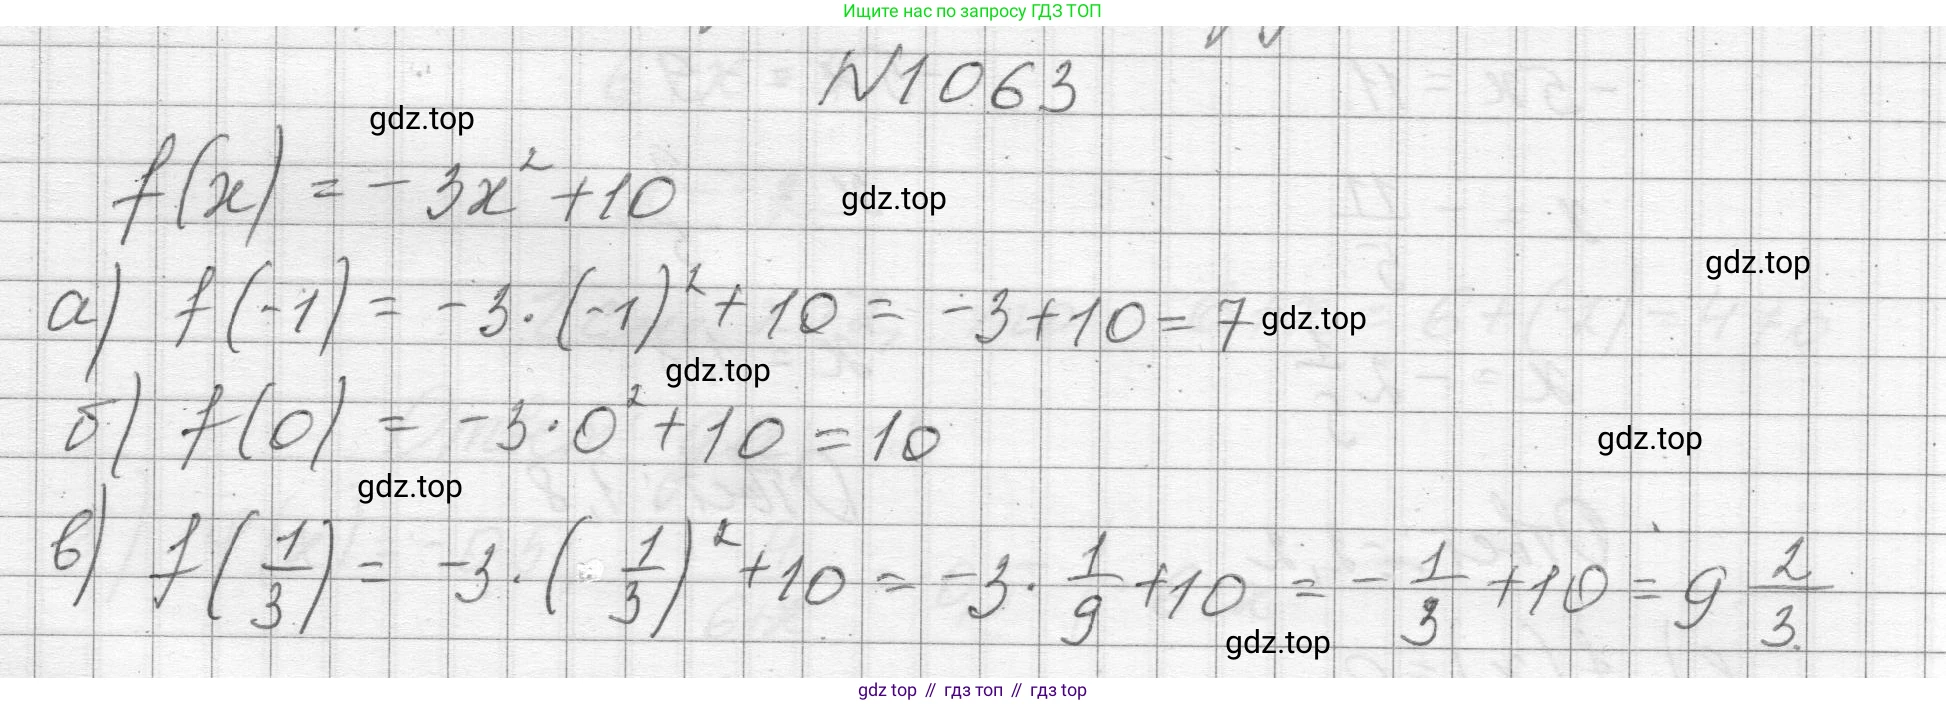 Ищите нас по запросу ГДЗ ТОП
N1063
gdz.top
f(x) = -3x² + 10
gdz.top
gdz.top
а) f(-1) = -3·(-1)² + 10 = -3+10 = 7
gdz.top
gdz.top
б) f(0) = -3·0² + 10 = 10
gdz.top
gdz.top
в) f(1/3) = -3·(1/3)² + 10 = -3·1/9 + 10 = -1/3 + 10 = 9 2/3.
gdz.top
gdz top // гдз топ // гдз top